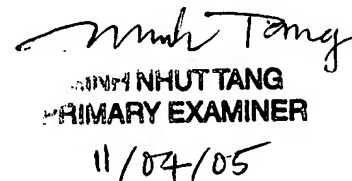 Minh Tang
MINH NHUT TANG
PRIMARY EXAMINER
11/04/05